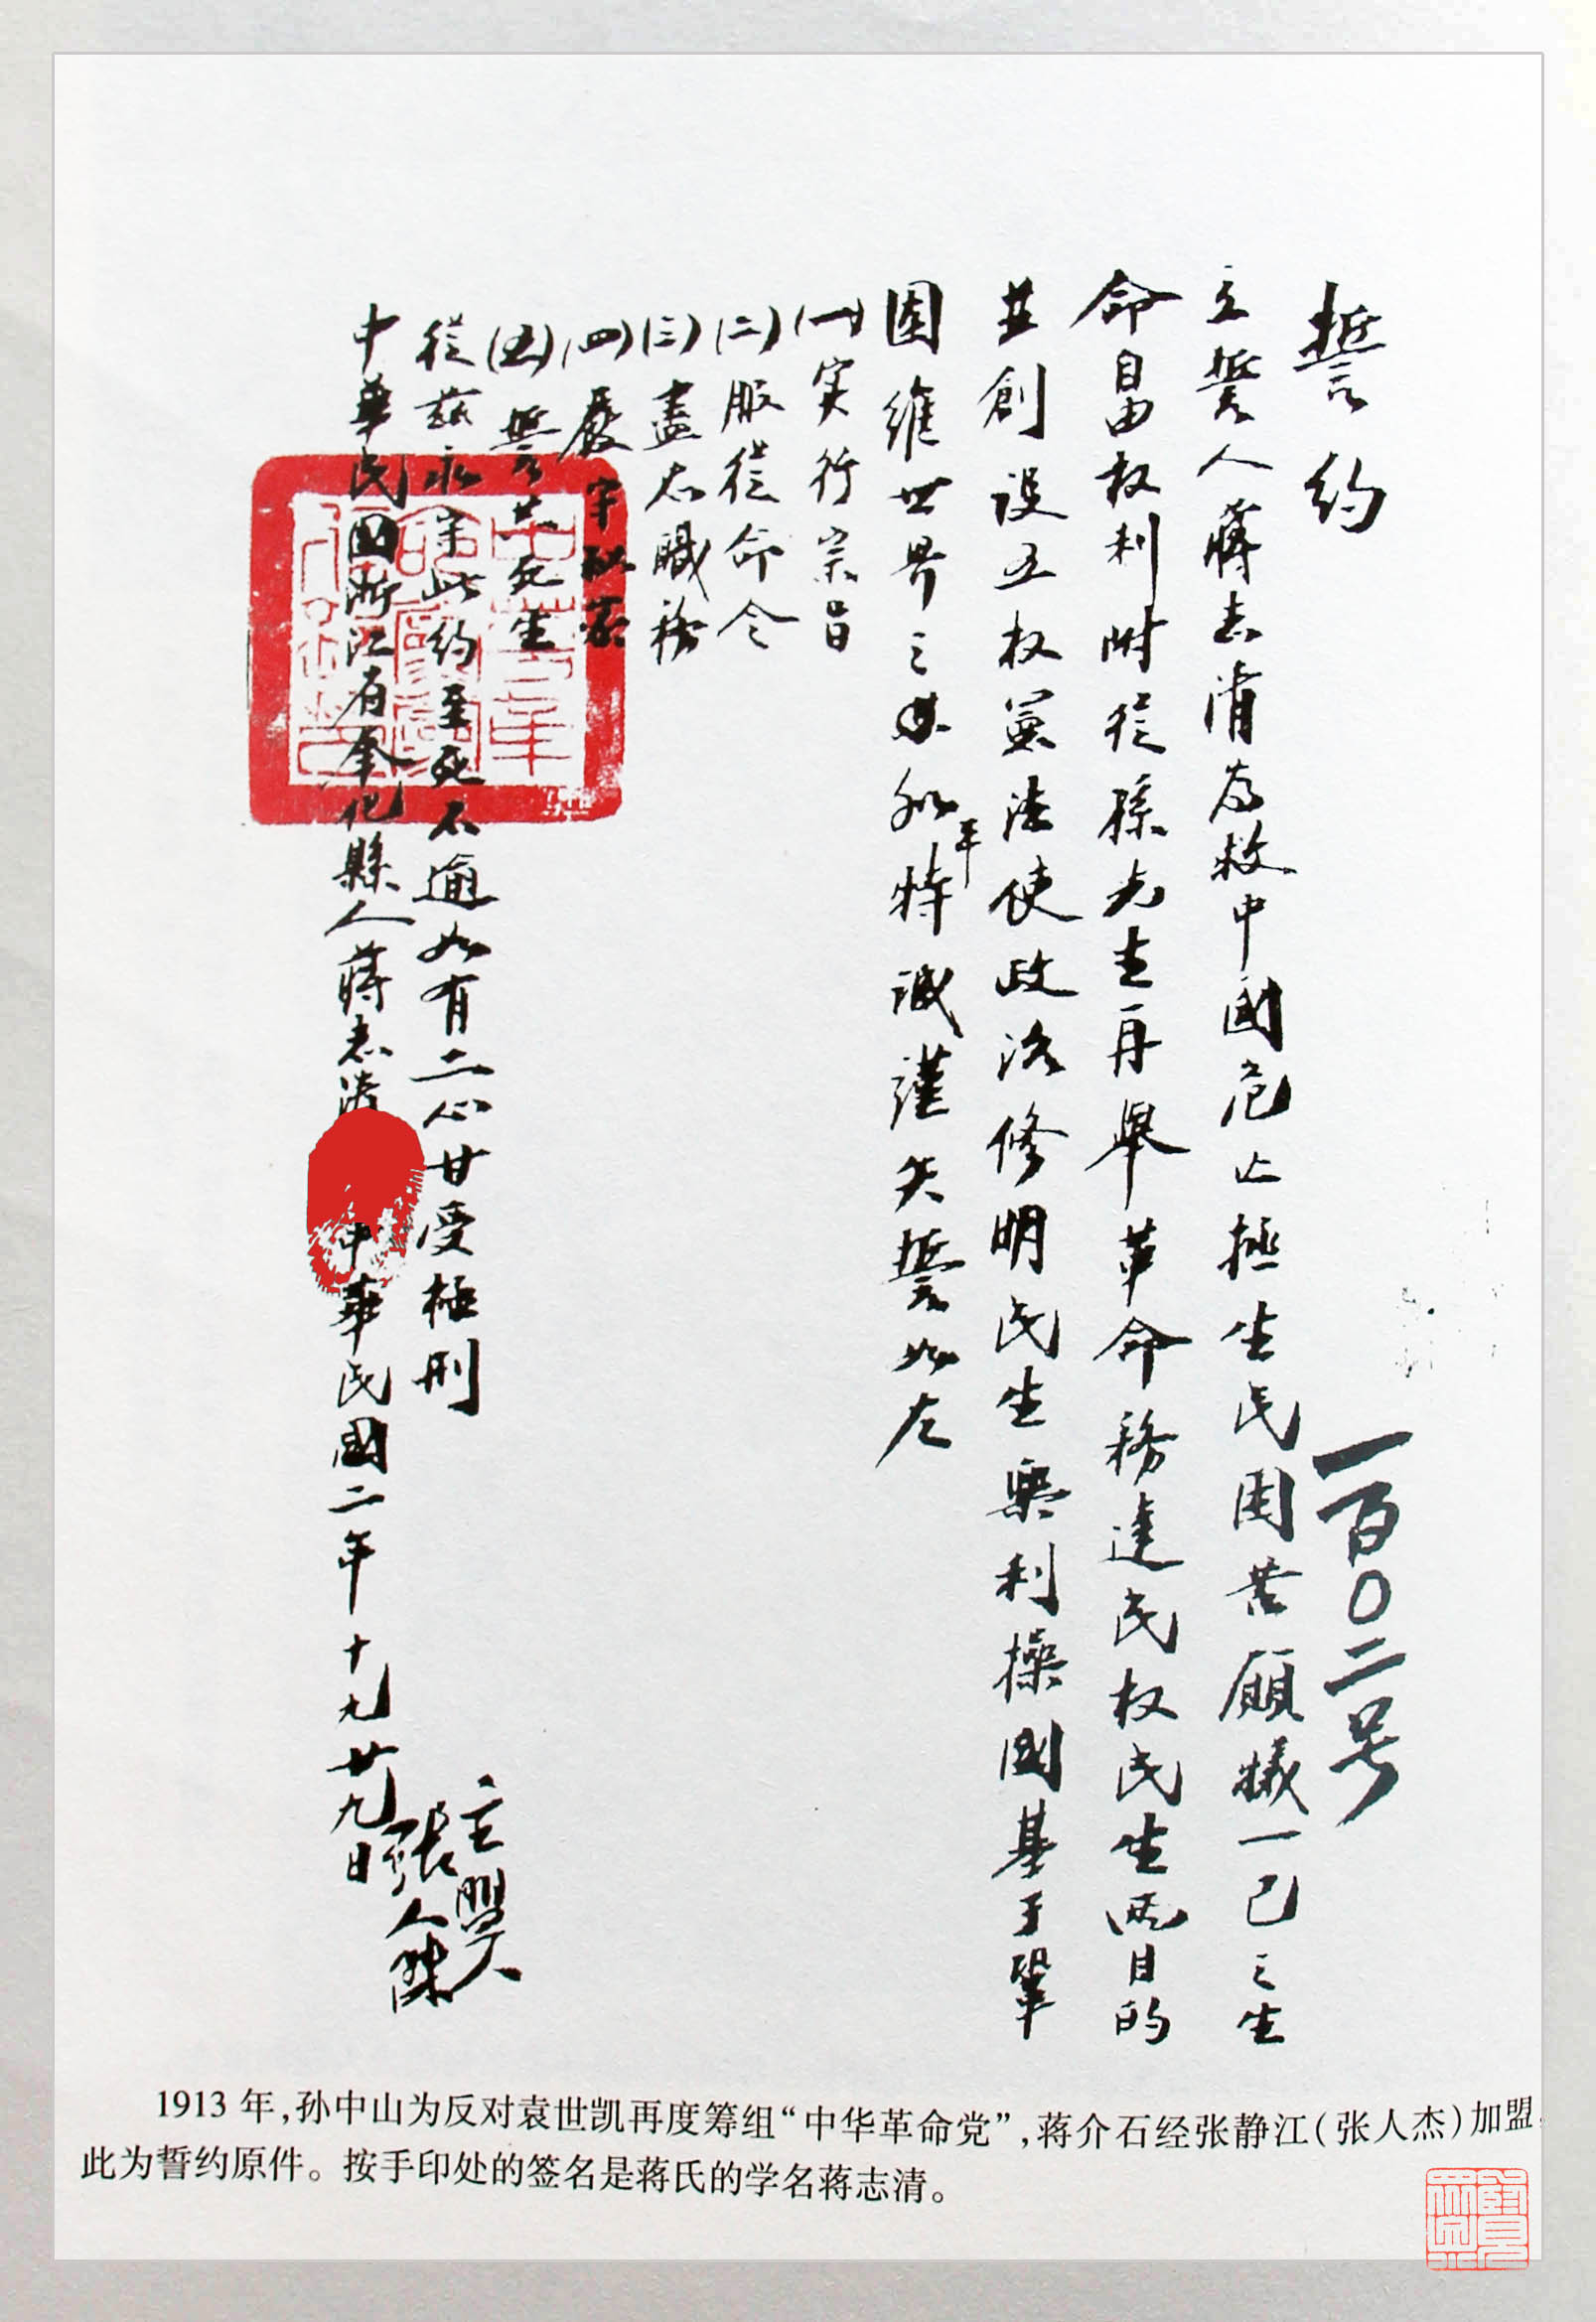 誓约
一百〇二号
立誓人蔣志清为救中國危亡拯生民困苦願犧一己之生
命自由权利附從孫先生再舉革命務達民权民生两目的
並創設五权憲法使政治修明民生樂利操國基于鞏
固維世界之和平特誠謹矢誓如左
(一)实行宗旨
(二)服從命令
(三)盡忠職務
(四)嚴守秘密
(五)誓共死生
從茲永守此约至死不渝如有二心甘受極刑
中華民國浙江省奉化縣人蔣志清
中華民國二年十月廿九日
主盟人
張人傑
1913 年,孙中山为反对袁世凯再度筹组“中华革命党”,蒋介石经张静江(张人杰)加盟,
此为誓约原件。按手印处的签名是蒋氏的学名蒋志清。